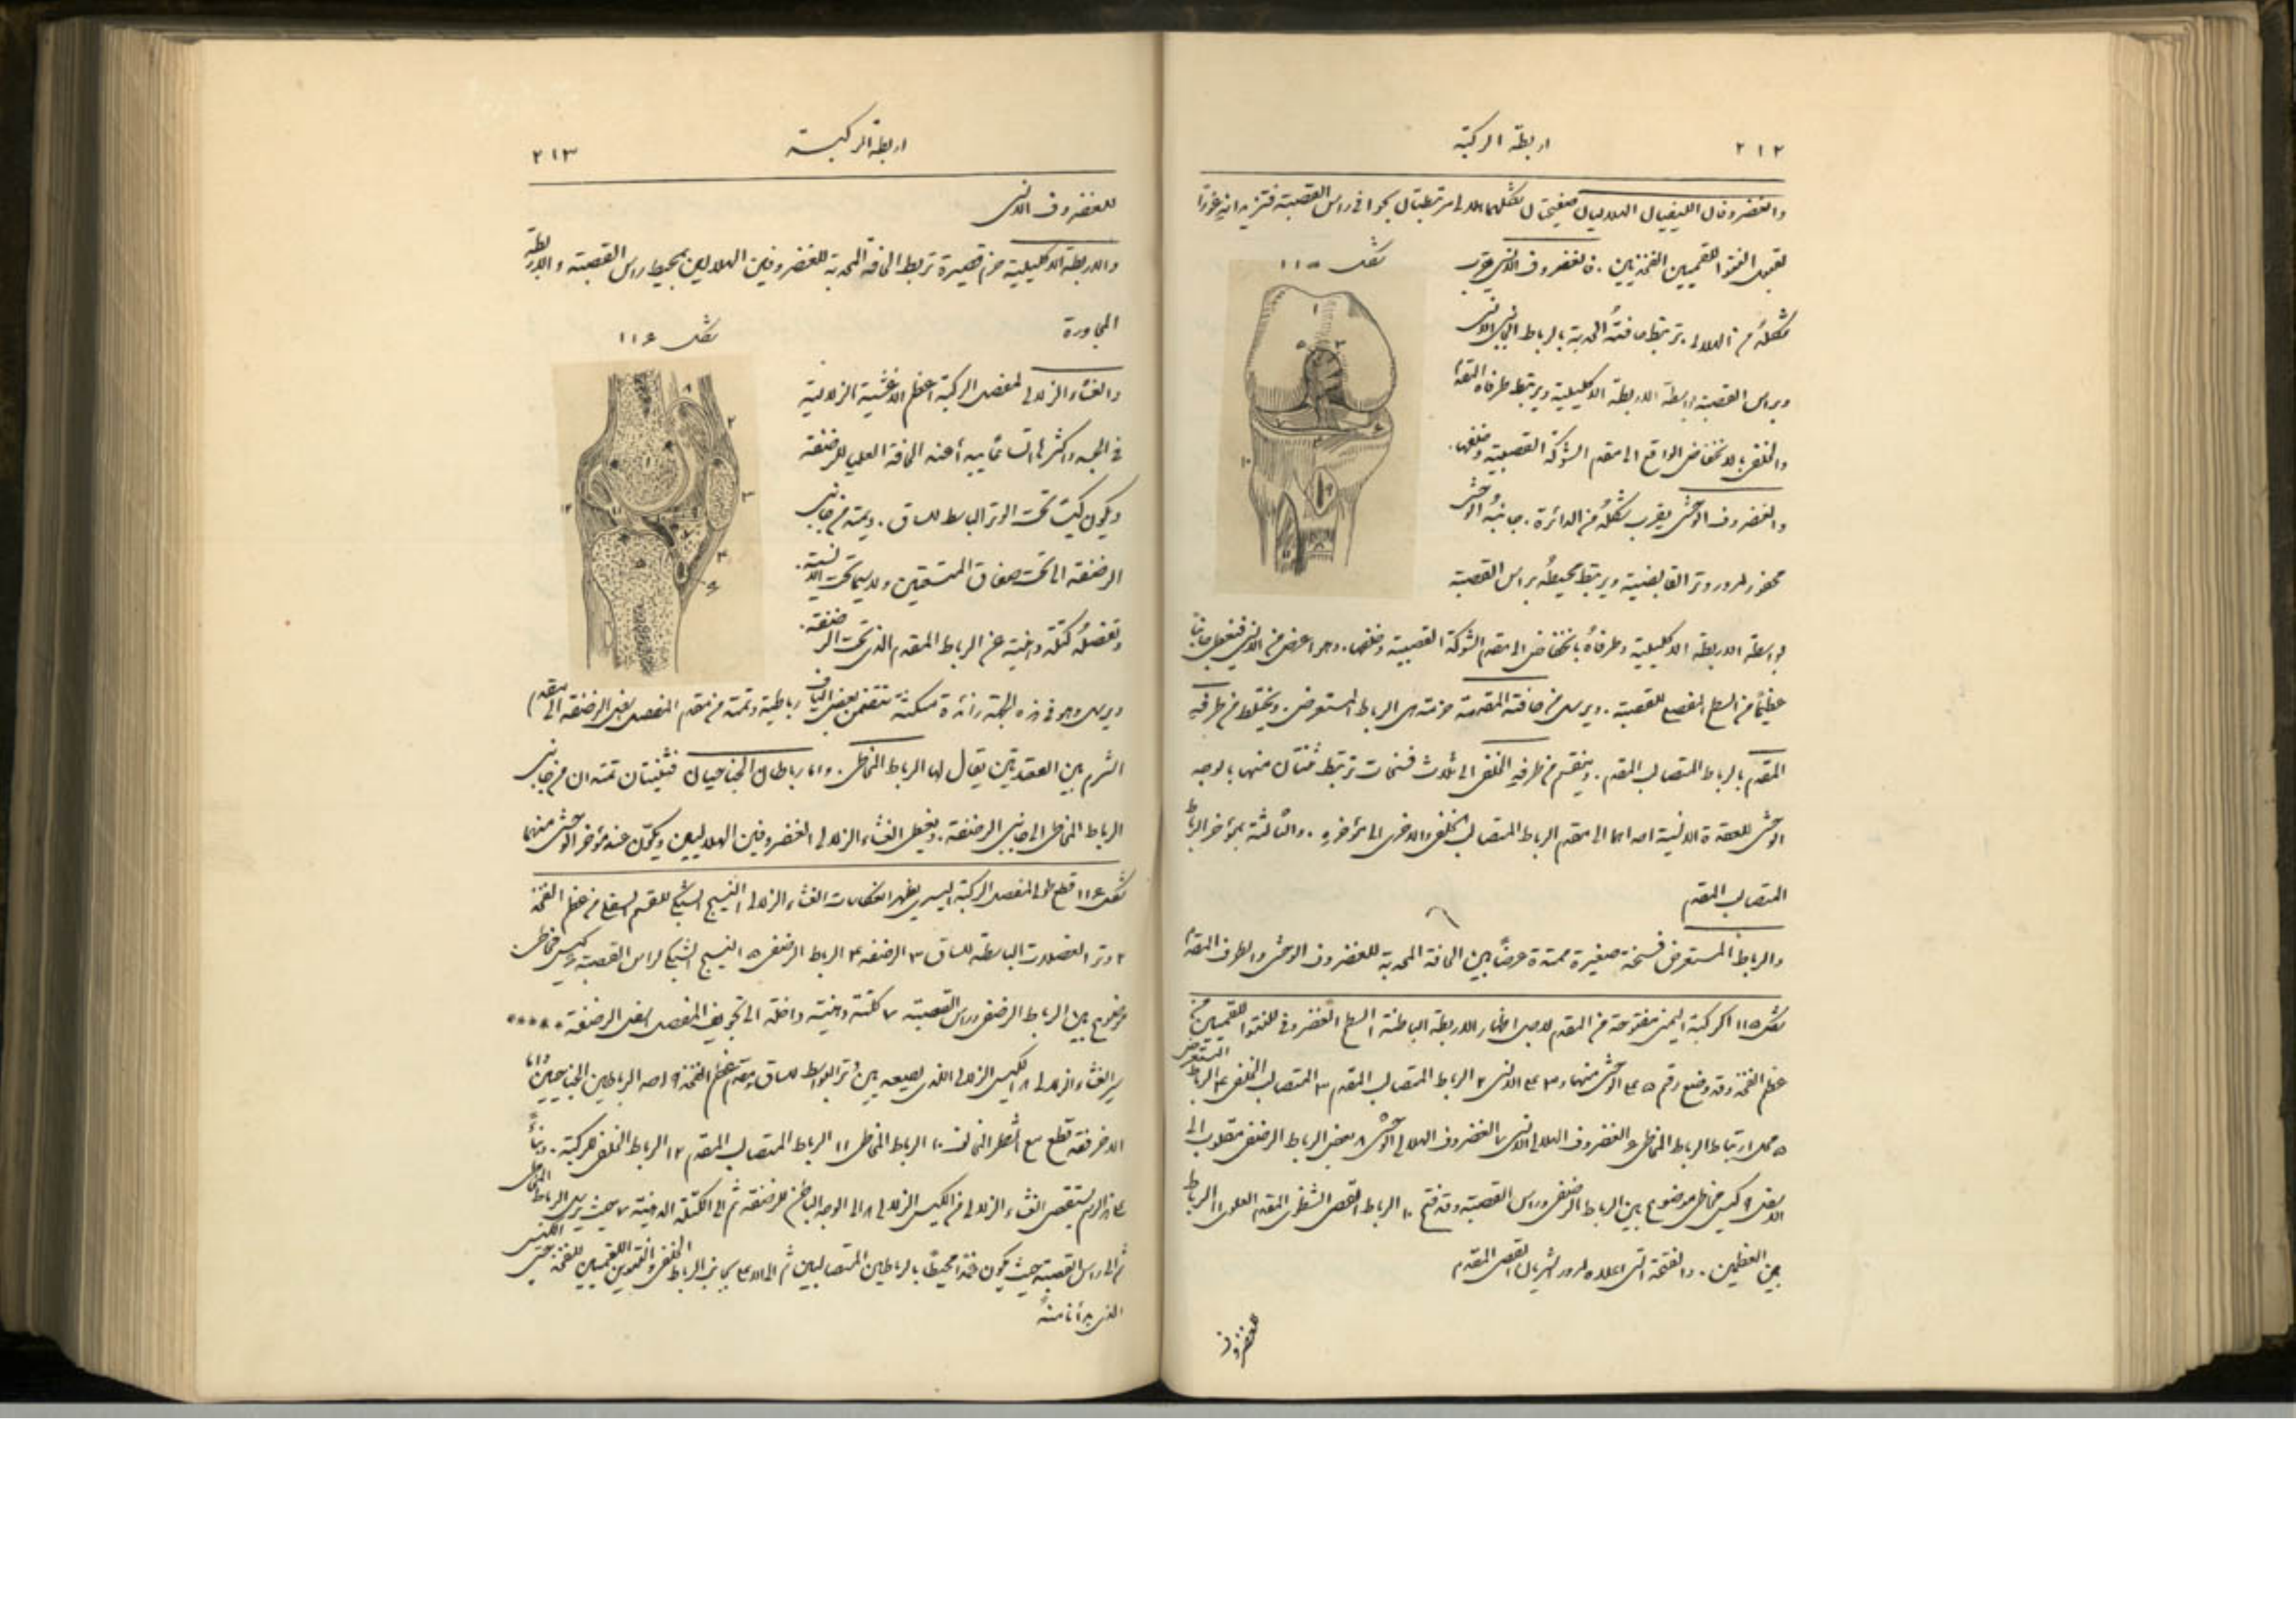 ٢١٢
اربطة الركبة
والغضروفان الليفيان الهلاليان صفيحتان شكلهما هلالي مرتبطتان بحوافي راس القصبة فتزيدانه غورًا
شكل ١١٥
لقبول النتوء اللقميين الفخذيين. فالغضروف الانسي يقرب
شكله من الهلالي. ترتبط حافته المحدبة بالرباط الجانبي الانسي
وبراس القصبة بواسطة الاربطة الاكليلية ويرتبط طرفاه المقدم
والخلفي بالانخفاض الواقع الى مقدم الشوكة القصبية وخلفها.
والغضروف الوحشي يقرب شكله من الدائرة. جانبه الوحشي
محفور لمرور وتر القابضية ويرتبط محيطه براس القصبة
بواسطة الاربطة الاكليلية وطرفاه بانخفاض الى مقدم الشوكة القصبية وخلفها. وهو اعرض من الانسي فيغطي جانبًا
عظيمًا من السطح المفصلي للقصبة. ويرسل من حافته المقدمة حزمة هي الرباط المستعرض. ويختلط من طرفه
المقدم بالرباط المتصالب المقدم. وينقسم من طرفه الخلفي الى ثلاث فسخات ترتبط ثنتان منها بالوجه
الوحشي للعقدة الانسية احداهما الى مقدم الرباط المتصالب الخلفي والاخرى الى مؤخره. والثالثة بمؤخر الرباط
المتصالب المقدم
والرباط المستعرض فسخة صغيرة ممتدة عرضًا بين الحافة المحدبة للغضروف الوحشي والطرف المقدم
شكل ١١٥ الركبة اليمنى مفتوحة من المقدم لاجل اظهار الاربطة الباطنة ١ السطح الغضروفي للنتوء اللقميين من
عظم الفخذ وقد وضع رقم ٥ على الوحشي منهما و٣ على الانسي ٢ الرباط المتصالب المقدم ٣ المتصالب الخلفي ٤ الرباط المستعرض
٥ محل ارتباط الرباط المخاطي ٦ الغضروف الهلالي الانسي ٧ الغضروف الهلالي الوحشي ٨ بعض الرباط الرضفي مقلوب الى
الاسفل ٩ كيس مخاطي موضوع بين الرباط الرضفي وراس القصبة وقد فتح ١٠ الرباط القصبي الشظي المقدم العلوي ١١ الرباط
بين العظمين. والفتحة التي اعلاه لمرور الشريان القصبي المقدم
للغضروف
٢١٣
اربطة الركبة
للغضروف الانسي
والاربطة الاكليلية حزم قصيرة تربط الحافة المحدبة للغضروفين الهلاليين بمحيط راس القصبة والاربطة
المجاورة
شكل ١١٦
والغشاء الزلالي لمفصل الركبة اعظم الاغشية الزلالية
في الجسد واكثرها اتساعًا يبدأ عند الحافة العليا للرضفة
ويكون كيسًا تحت الوتر الباسط للساق. ويمتد من جانبي
الرضفة الى تحت صفاق المتسعتين ولاسيما تحت الانسية.
وتفصله كتلة دهنية عن الرباط المقدم الذي تحت الرضفة.
ويرسل وهو في هذه الجهة زائدة مسكنة تتضمن بعض الياف رباطية وتمتد من مقدم المفصل اسفل الرضفة الى مقدم
الشرم بين العقدتين يقال لها الرباط المخاطي. واما رباطان الجناحيان فثنيتان تمتدان من جانبي
الرباط المخاطي الى جانبي الرضفة. ويغطي الغشاء الزلالي الغضروفين الهلاليين ويكوّن عند مؤخر الوحشي منهما
شكل ١١٦ قطع طولي لمفصل الركبة اليسرى يظهر انعكاسات الغشاء الزلالي ١ النسيج الشبكي للقسم السفلي من عظم الفخذ
٢ وتر العضلات الباسطة للساق ٣ الرضفة ٤ الرباط الرضفي ٥ النسيج الشبكي لراس القصبة ٦ كيس مخاطي
موضوع بين الرباط الرضفي وراس القصبة ٧ كتلة دهنية داخلة الى تجويف المفصل اسفل الرضفة ****
سير الغشاء الزلالي ٨ الكيس الزلالي الذي يصعد بين وتر البواسط للساق ومقدم عظم الفخذ ٩ احد الرباطين الجناحيين واما
الاخر فقد قطع مع الشطر الثاني ١٠ الرباط المخاطي ١١ الرباط المتصالب المقدم ١٢ الرباط الخلفي للركبة. وبناءً
على هذا الرسم يستقصى الغشاء الزلالي من الكيس الزلالي ٨ الى الوجه الباطن للرضفة ثم الى الكتلة الدهنية ٧ حيث يرسل الرباط المخاطي
ثم الى راس القصبة حيث يكون غمدًا محيطًا بالرباطين المتصالبين ثم الى الاعلى بجانب الرباط الخلفي والنتوئين اللقميين للفخذ حتى الكيس
الذي بدأنا منه